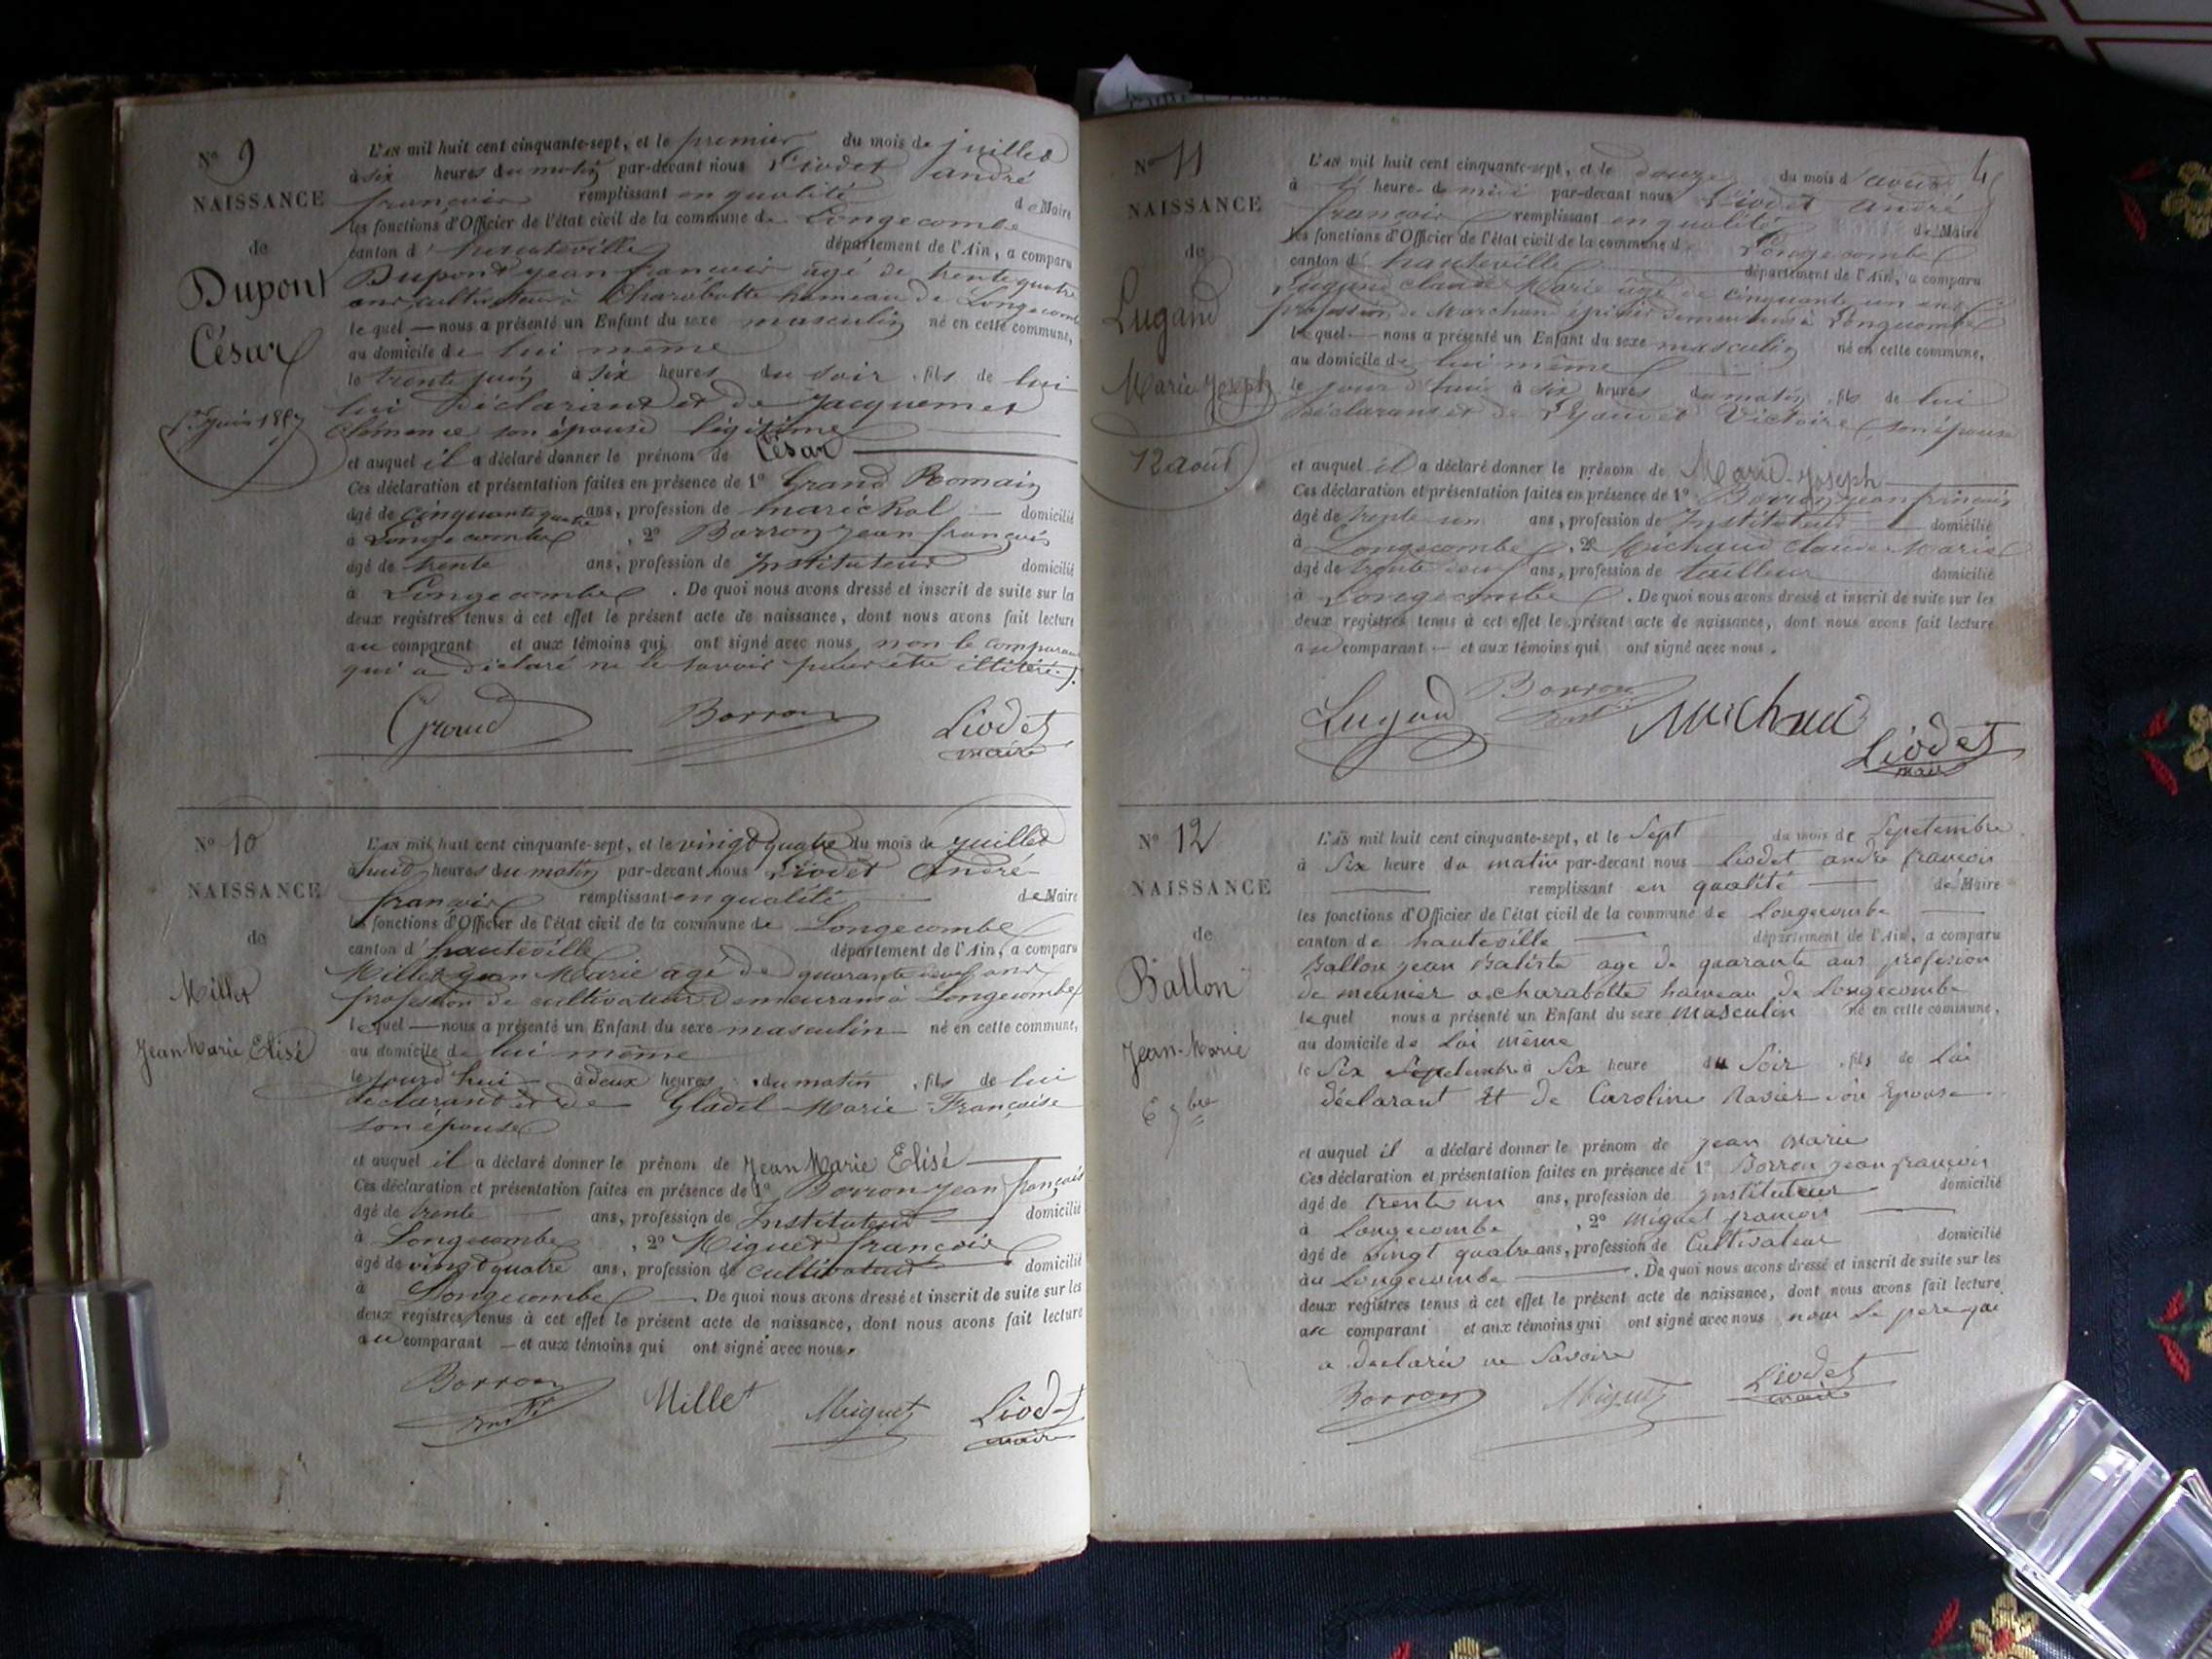 N° 9
NAISSANCE
de
Dupont
César
L'AN mil huit cent cinquante-sept, et le premier du mois de juillet
à six heures du matin par-devant nous Liodet andré
françois remplissant en qualité de Maire
les fonctions d'Officier de l'état civil de la commune de Longecombe
canton d' hauteville département de l'Ain, a comparu
Dupont jean françois âgé de trente quatre
ans cultivateur à Charabotte hameau de Longecombe
lequel — nous a présenté un Enfant du sexe masculin né en cette commune,
au domicile de lui même
le trente juin à six heures du soir , fils de lui
lui déclarant et de Jacquemet
Clémence son épouse légitime
et auquel il a déclaré donner le prénom de César
Ces déclaration et présentation faites en présence de 1° Grand Romain
âgé de cinquante quatre ans, profession de maréchal domicilié
à Longecombe , 2° Borron jean françois
âgé de trente ans, profession de Instituteur domicilié
à Longecombe . De quoi nous avons dressé et inscrit de suite sur les
deux registres tenus à cet effet le présent acte de naissance, dont nous avons fait lecture
au comparant et aux témoins qui ont signé avec nous non le comparant
qui a déclaré ne le savoir pour être illitéré.
Grand Borron Liodet
maire
N° 10
NAISSANCE
de
Millet
Jean Marie Elisé
L'AN mil huit cent cinquante-sept, et le vingt quatre du mois de juillet
à huit heures du matin par-devant nous Liodet André
françois remplissant en qualité de Maire
les fonctions d'Officier de l'état civil de la commune de Longecombe
canton d' hauteville département de l'Ain, a comparu
Millet jean Marie agé de quarante neuf ans
profession de cultivateur demeurant à Longecombe
lequel — nous a présenté un Enfant du sexe masculin né en cette commune,
au domicile de lui même
le jourd'hui à deux heures du matin , fils de lui
déclarant et de Gladel Marie Française
son épouse
et auquel il a déclaré donner le prénom de Jean Marie Elisé
Ces déclaration et présentation faites en présence de 1° Borron jean françois
âgé de trente ans, profession de Instituteur domicilié
à Longecombe , 2° Miguet françois
âgé de vingt quatre ans, profession de cultivateur domicilié
à Longecombe — . De quoi nous avons dressé et inscrit de suite sur les
deux registres tenus à cet effet le présent acte de naissance, dont nous avons fait lecture
au comparant — et aux témoins qui ont signé avec nous.
Borron Millet Miguet Liodet
maire
N° 11
NAISSANCE
de
Lugand
Marie Joseph
12 août
L'AN mil huit cent cinquante-sept, et le douze du mois d'août
à heure de midi par-devant nous Liodet André
françois remplissant en qualité de Maire
les fonctions d'Officier de l'état civil de la commune de Longecombe
canton d' hauteville département de l'Ain, a comparu
Lugand claude Marie âgé de cinquante un ans
profession de Marchand épicier demeurant à Longecombe
lequel — nous a présenté un Enfant du sexe masculin né en cette commune,
au domicile de lui même
le jour d'hui à six heures du matin , fils de lui
déclarant et de Victoire son épouse
et auquel il a déclaré donner le prénom de Marie-Joseph
Ces déclaration et présentation faites en présence de 1° Borron jean françois
âgé de trente un ans, profession de Instituteur domicilié
à Longecombe , 2° Michaud Claude Marie
âgé de trente ans, profession de tailleur domicilié
à Longecombe . De quoi nous avons dressé et inscrit de suite sur les
deux registres tenus à cet effet le présent acte de naissance, dont nous avons fait lecture
au comparant — et aux témoins qui ont signé avec nous.
Lugand Borron Michaud Liodet
maire
N° 12
NAISSANCE
de
Ballon
Jean-Marie
6 7bre
L'AN mil huit cent cinquante-sept, et le Sept du mois de Sepetembre
à Six heure du matin par-devant nous Liodet andre françois
remplissant en qualité de Maire
les fonctions d'Officier de l'état civil de la commune de Longecombe
canton de hauteville département de l'Ain, a comparu
Ballon jean Batiste age de quarante ans profesion
de meunier a charabotte hameau de Longecombe
lequel nous a présenté un Enfant du sexe masculin né en cette commune,
au domicile de Lui même
le Six Sepetembre à Six heure du Soir , fils de Lui
déclarant Et de Caroline Ravier son Epouse
et auquel il a déclaré donner le prénom de jean marie
Ces déclaration et présentation faites en présence de 1° Borron jean françois
âgé de trente un ans, profession de jnstituteur domicilié
à Longecombe , 2° Miguet françois
âgé de vingt quatre ans, profession de Cultivateur domicilié
à Longecombe — . De quoi nous avons dressé et inscrit de suite sur les
deux registres tenus à cet effet le présent acte de naissance, dont nous avons fait lecture
au comparant et aux témoins qui ont signé avec nous non Le pere qui
a declaré ne Savoire
Borron Miguet Liodet
maire